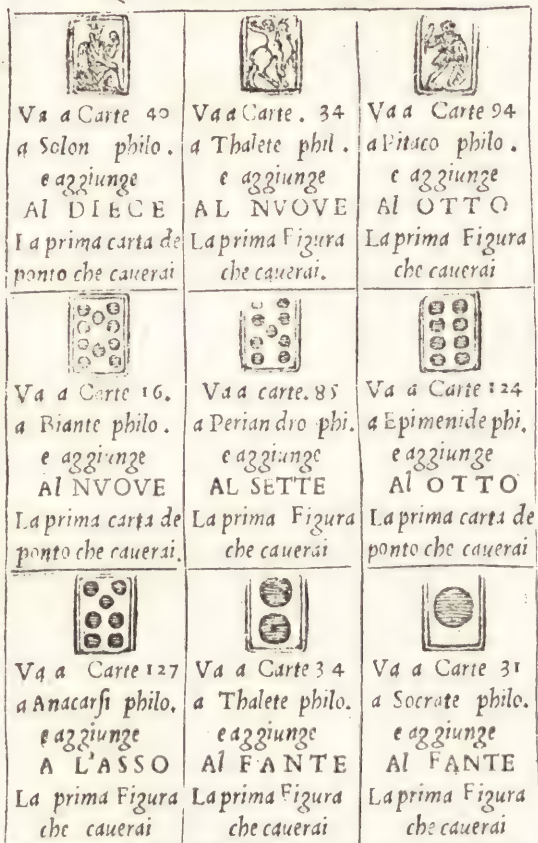 Va a Carte 40
a Solon philo.
e aggiunge
Al DIECE
La prima carta de
ponto che cauerai
Va a Carte. 34
a Thalete phil.
e aggiunge
AL NVOVE
La prima Figura
che cauerai.
Va a Carte 94
a Pitaco philo.
e aggiunge
Al OTTO
La prima Figura
che cauerai
Va a Carte 16.
a Biante philo.
e aggiunge
Al NVOVE
La prima carta de
ponto che cauerai.
Va a carte. 85
a Perian dro phi.
e aggiunge
AL SETTE
La prima Figura
che cauerai
Va a Carte 124
a Epimenide phi.
e aggiunge
Al OTTO
La prima carta de
ponto che cauerai
Va a Carte 127
a Anacarsi philo.
e aggiunge
A L'ASSO
La prima Figura
che cauerai
Va a Carte 34
a Thalete philo.
e aggiunge
Al FANTE
La prima Figura
che cauerai
Va a Carte 31
a Socrate philo.
e aggiunge
Al FANTE
La prima Figura
che cauerai